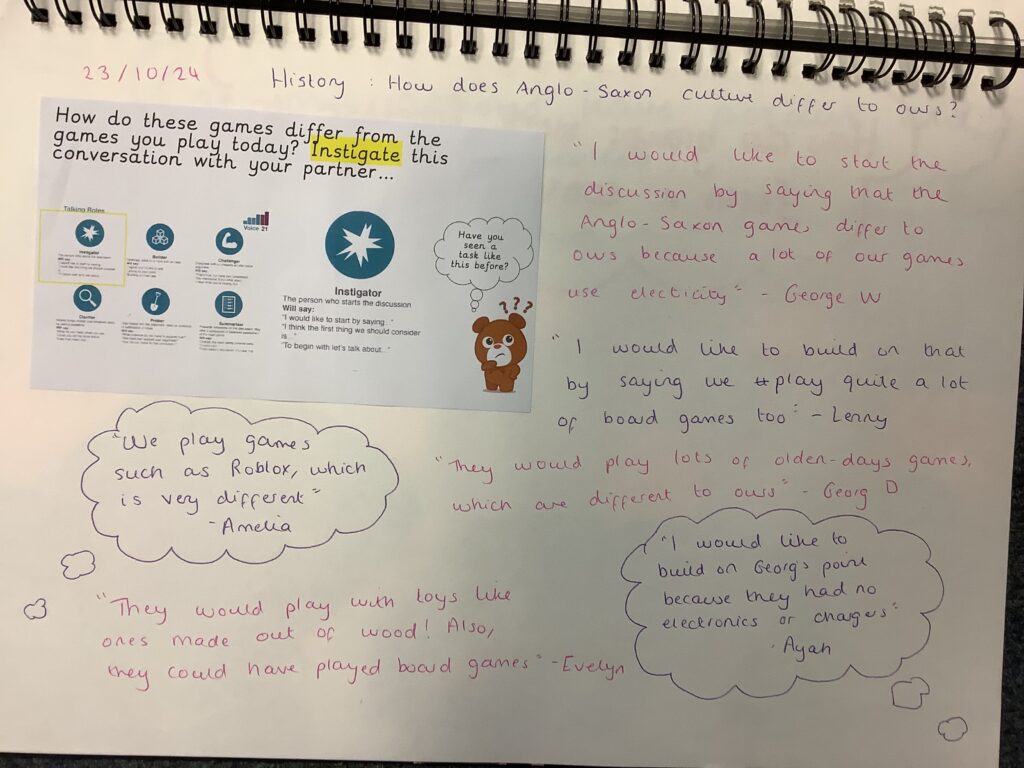 23/10/24 History : How does Anglo-Saxon culture differ to ours?
How do these games differ from the
games you play today? Instigate this
conversation with your partner...
Talking Roles
Voice 21
Instigator
Builder
Challenger
Clarifier
Prober
Summariser
Instigator
The person who starts the discussion
Will say:
"I would like to start by saying..."
"I think the first thing we should consider
is..."
"To begin with let's talk about..."
Have you
seen a
task like
this before?
???
"I would like to start the
discussion by saying that the
Anglo-Saxon games differ to
ours because a lot of our games
use electicity" - George W
"I would like to build on that
by saying we play quite a lot
of board games too" - Lenny
"We play games
such as Roblox, which
is very different"
- Amelia
"They would play lots of olden-days games,
which are different to ours" - Georg D
"I would like to
build on Georg's point
because they had no
electronics or chargers"
- Ayah
"They would play with toys like
ones made out of wood! Also,
they could have played board games" - Evelyn